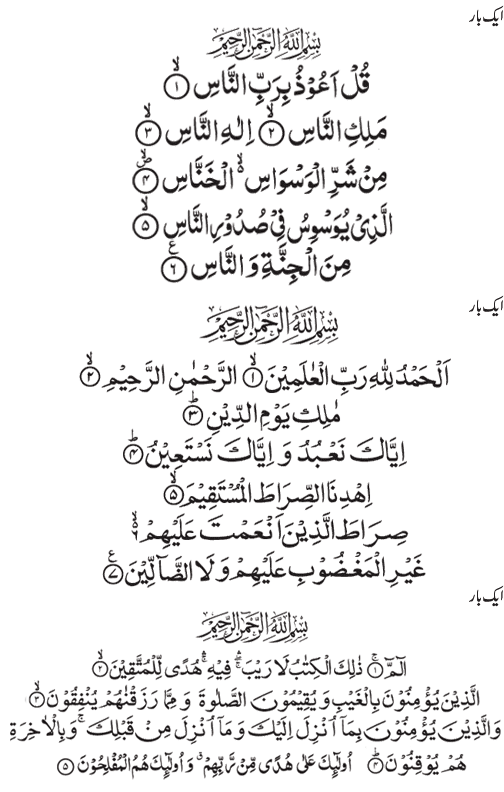 ایک بار
بِسْمِ اللّٰهِ الرَّحْمٰنِ الرَّحِيْمِ
قُلْ اَعُوْذُ بِرَبِّ النَّاسِ ۙ﴿۱﴾
مَلِكِ النَّاسِ ۙ﴿۲﴾ اِلٰهِ النَّاسِ ۙ﴿۳﴾
مِنْ شَرِّ الْوَسْوَاسِ ۙ الْخَنَّاسِ ۪ۙ﴿۴﴾
الَّذِيْ يُوَسْوِسُ فِيْ صُدُوْرِ النَّاسِ ۙ﴿۵﴾
مِنَ الْجِنَّةِ وَ النَّاسِ ﴿۶﴾ع
ایک بار
بِسْمِ اللّٰهِ الرَّحْمٰنِ الرَّحِيْمِ
اَلْحَمْدُ لِلّٰهِ رَبِّ الْعٰلَمِيْنَ ۙ﴿۱﴾ الرَّحْمٰنِ الرَّحِيْمِ ۙ﴿۲﴾
مٰلِكِ يَوْمِ الدِّيْنِ ؕ﴿۳﴾
اِيَّاكَ نَعْبُدُ وَ اِيَّاكَ نَسْتَعِيْنُ ؕ﴿۴﴾
اِهْدِنَا الصِّرَاطَ الْمُسْتَقِيْمَ ۙ﴿۵﴾
صِرَاطَ الَّذِيْنَ اَنْعَمْتَ عَلَيْهِمْ ۙ۬۶
غَيْرِ الْمَغْضُوْبِ عَلَيْهِمْ وَ لَا الضَّآلِّيْنَ ﴿۷﴾ع
ایک بار
بِسْمِ اللّٰهِ الرَّحْمٰنِ الرَّحِيْمِ
الٓمّٓ ۚ﴿۱﴾ ذٰلِكَ الْكِتٰبُ لَا رَيْبَ ۛۚ فِيْهِ ۛۚ هُدًى لِّلْمُتَّقِيْنَ ۙ﴿۲﴾
الَّذِيْنَ يُؤْمِنُوْنَ بِالْغَيْبِ وَ يُقِيْمُوْنَ الصَّلٰوةَ وَ مِمَّا رَزَقْنٰهُمْ يُنْفِقُوْنَ ۙ﴿۳﴾
وَالَّذِيْنَ يُؤْمِنُوْنَ بِمَاۤ اُنْزِلَ اِلَيْكَ وَ مَاۤ اُنْزِلَ مِنْ قَبْلِكَ ۚ وَ بِالْاٰخِرَةِ
هُمْ يُوْقِنُوْنَ ؕ﴿۴﴾ اُولٰٓئِكَ عَلٰى هُدًى مِّنْ رَّبِّهِمْ ۙ وَ اُولٰٓئِكَ هُمُ الْمُفْلِحُوْنَ ﴿۵﴾